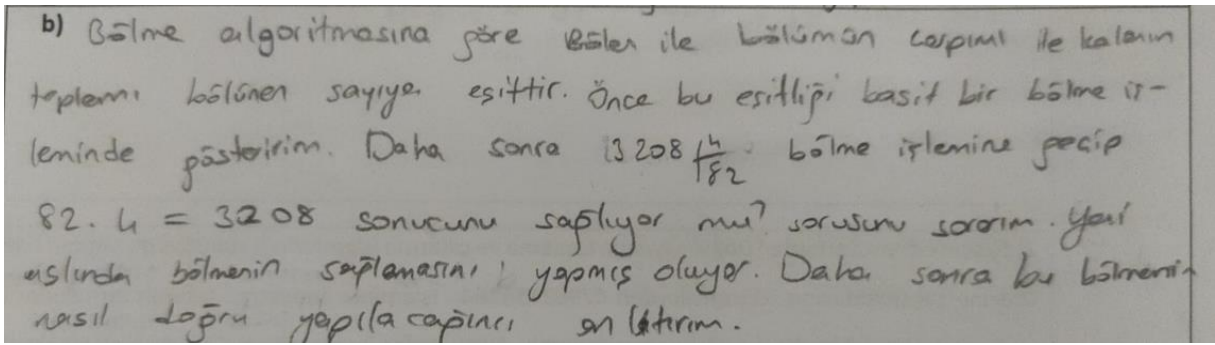 b) Bölme algoritmasına göre Bölen ile bölümün çarpımı ile kalanın
toplamı bölünen sayıya eşittir. Önce bu eşitliği basit bir bölme iş-
leminde gösteririm. Daha sonra 3208 4 bölme işlemine geçip
82
82. 4 = 3208 sonucunu sağlıyor mu? sorusunu sorarım. Yani
aslında bölmenin sağlamasını yapmış oluyor. Daha sonra bu bölmenin
nasıl doğru yapılacağını anlatırım.